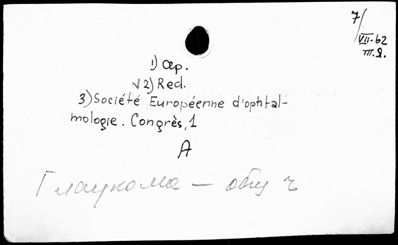 7/VII-62
III.Я.
1) Ср.
√2) Red.
3) Société Européenne d'ophtal-
mologie. Congrès, 1
A
Глаукома — общ ч